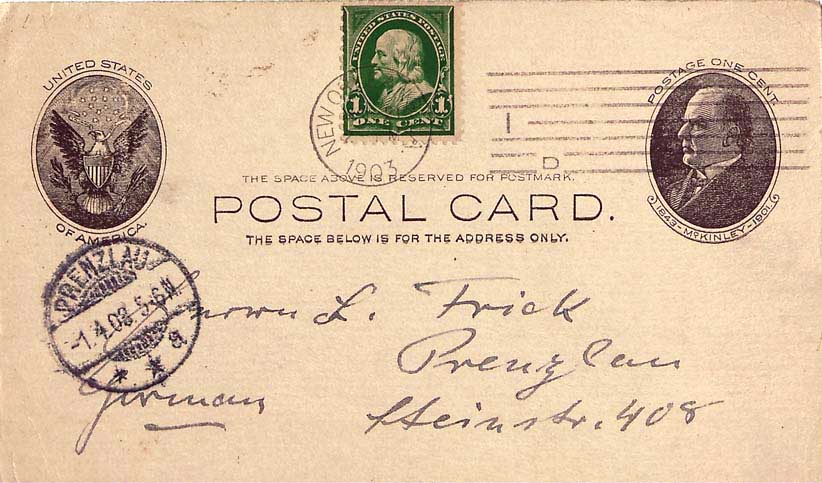 UNITED STATES
OF AMERICA.
UNITED STATES POSTAGE
1 1
ONE CENT
NEW O
1903
D
POSTAGE ONE CENT.
1843-McKINLEY-1901
THE SPACE ABOVE IS RESERVED FOR POSTMARK.
POSTAL CARD.
THE SPACE BELOW IS FOR THE ADDRESS ONLY.
PRENZLAU
-1.4.03 5-6N
* * a
L. Frick
Prenzlau
Germany
Steinstr. 408